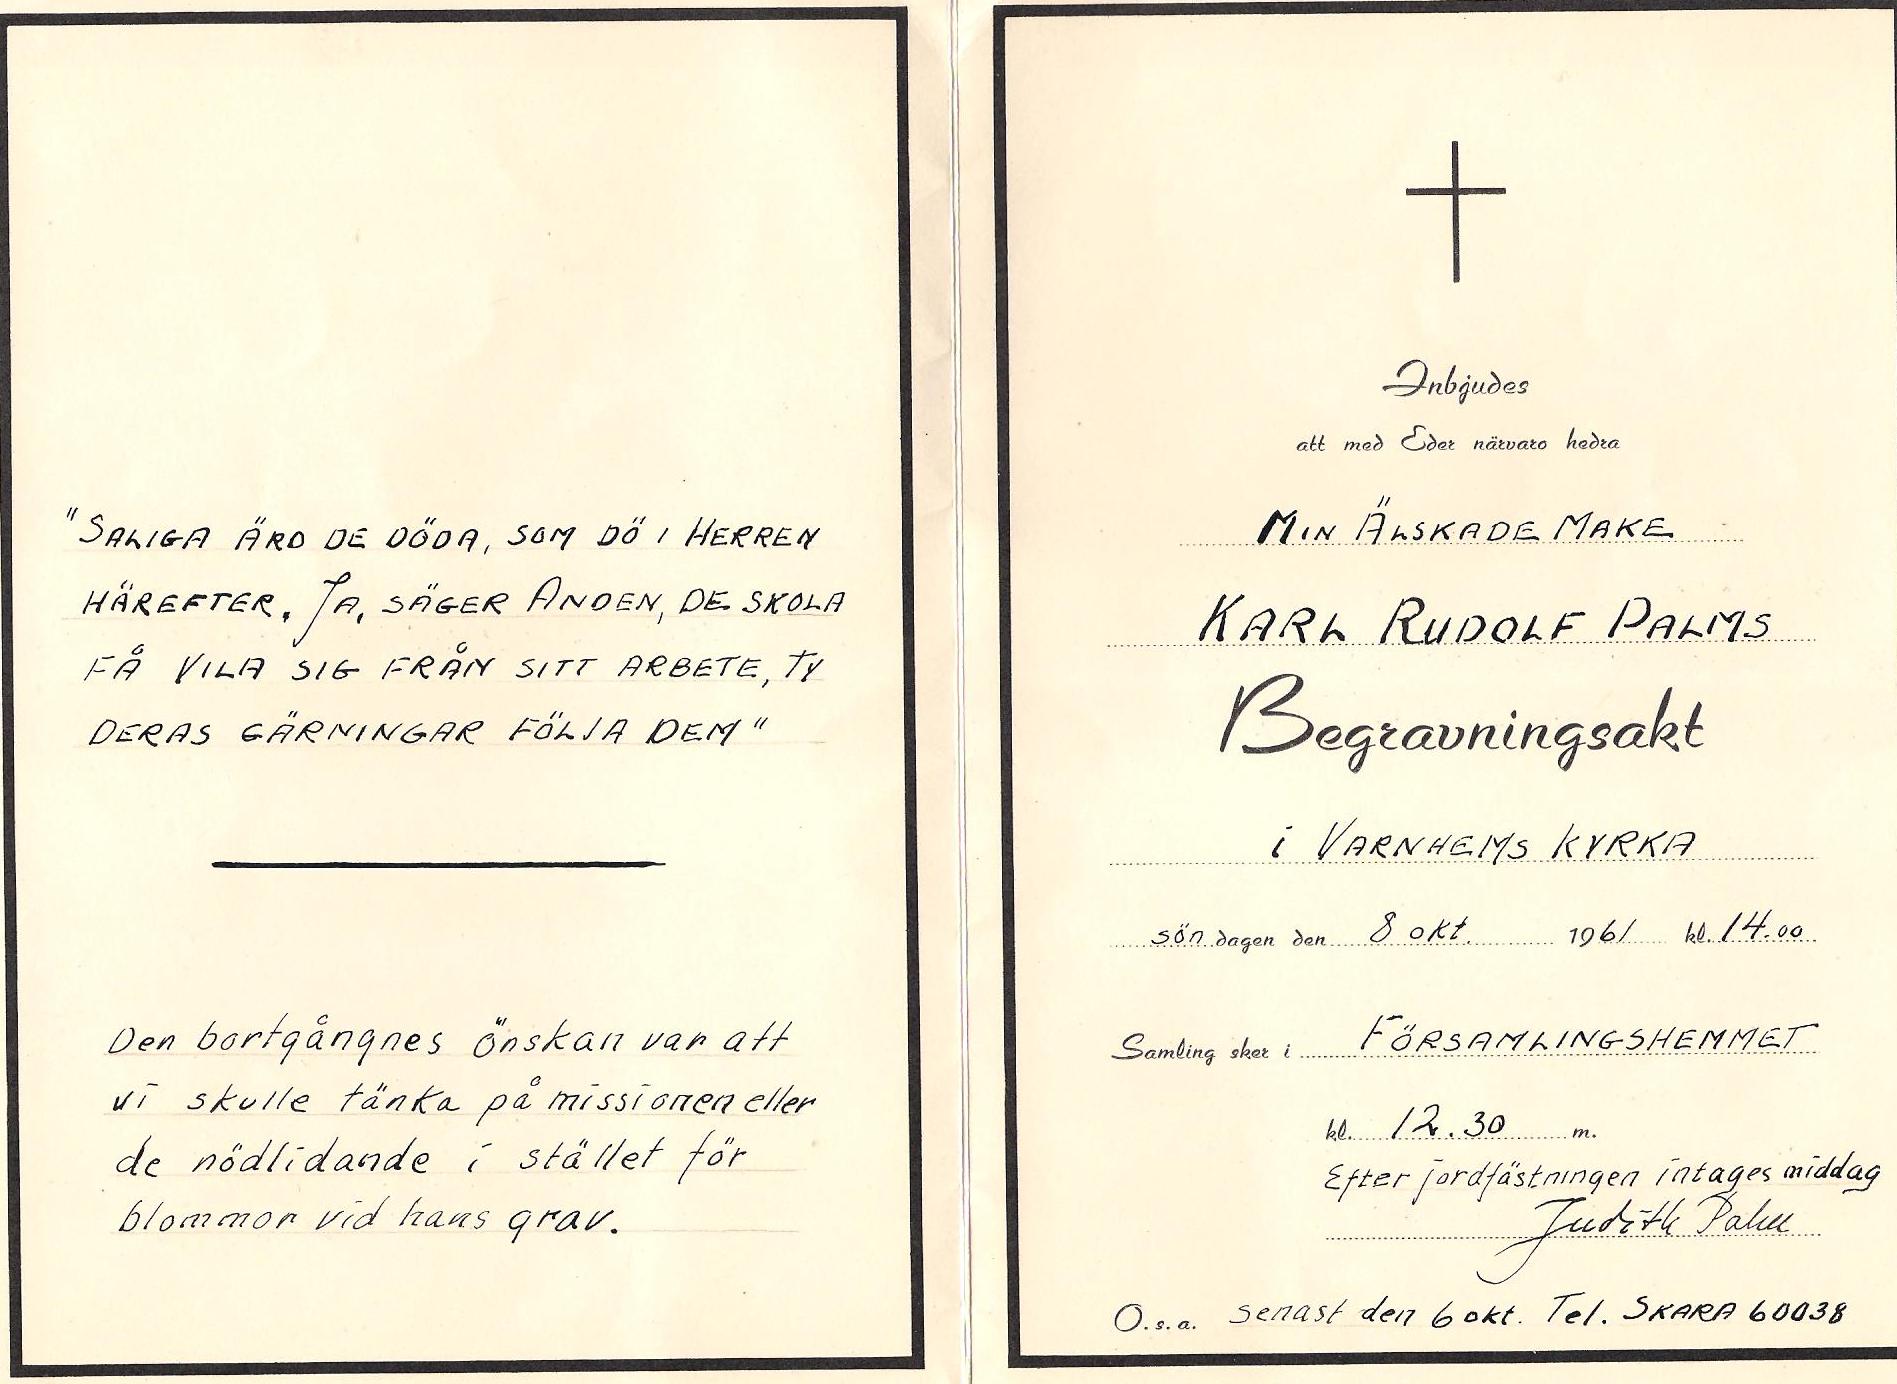 "SALIGA ÄRO DE DÖDA, SOM DÖ I HERREN
HÄREFTER. JA, SÄGER ANDEN, DE SKOLA
FÅ VILA SIG FRÅN SITT ARBETE, TY
DERAS GÄRNINGAR FÖLJA DEM"
Den bortgångnes önskan var att
vi skulle tänka på missionen eller
de nödlidande i stället för
blommor vid hans grav.
Inbjudes
att med Eder närvaro hedra
MIN ÄLSKADE MAKE
KARL RUDOLF PALMS
Begravningsakt
i VARNHEMS KYRKA
söndagen den 8 okt. 1961 kl. 14.00
Samling sker i FÖRSAMLINGSHEMMET
kl. 12.30 m.
Efter jordfästningen intages middag
Judith Palm
O.s.a. senast den 6 okt. Tel. SKARA 60038